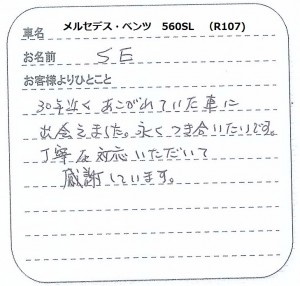 車名 メルセデス・ベンツ 560SL (R107)
お名前 SE
お客様よりひとこと
30年近くあこがれていた車に
出会えました。永くつき合いたいです。
丁寧な対応いただいて
感謝しています。